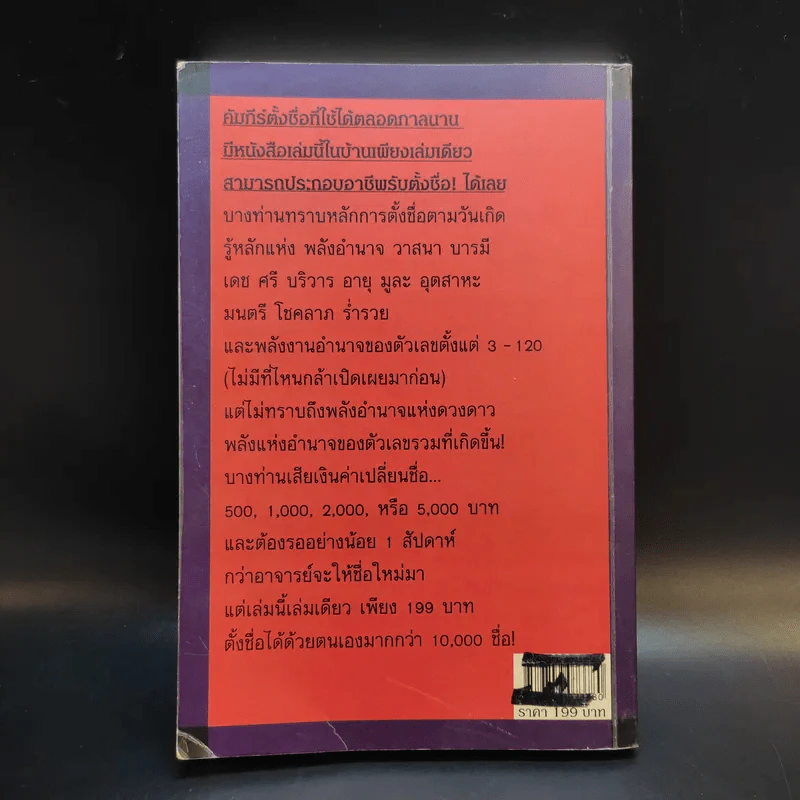 คัมภีร์ตั้งชื่อที่ใช้ได้ตลอดกาลนาน
มีหนังสือเล่มนี้ในบ้านเพียงเล่มเดียว
สามารถประกอบอาชีพรับตั้งชื่อ! ได้เลย
บางท่านทราบหลักการตั้งชื่อตามวันเกิด
รู้หลักแห่ง พลังอำนาจ วาสนา บารมี
เดช ศรี บริวาร อายุ มูละ อุตสาหะ
มนตรี โชคลาภ ร่ำรวย
และพลังงานอำนาจของตัวเลขตั้งแต่ 3 - 120
(ไม่มีที่ไหนกล้าเปิดเผยมาก่อน)
แต่ไม่ทราบถึงพลังอำนาจแห่งดวงดาว
พลังแห่งอำนาจของตัวเลขรวมที่เกิดขึ้น!
บางท่านเสียเงินค่าเปลี่ยนชื่อ...
500, 1,000, 2,000, หรือ 5,000 บาท
และต้องรออย่างน้อย 1 สัปดาห์
กว่าอาจารย์จะให้ชื่อใหม่มา
แต่เล่มนี้เล่มเดียว เพียง 199 บาท
ตั้งชื่อได้ด้วยตนเองมากกว่า 10,000 ชื่อ!
ราคา 199 บาท